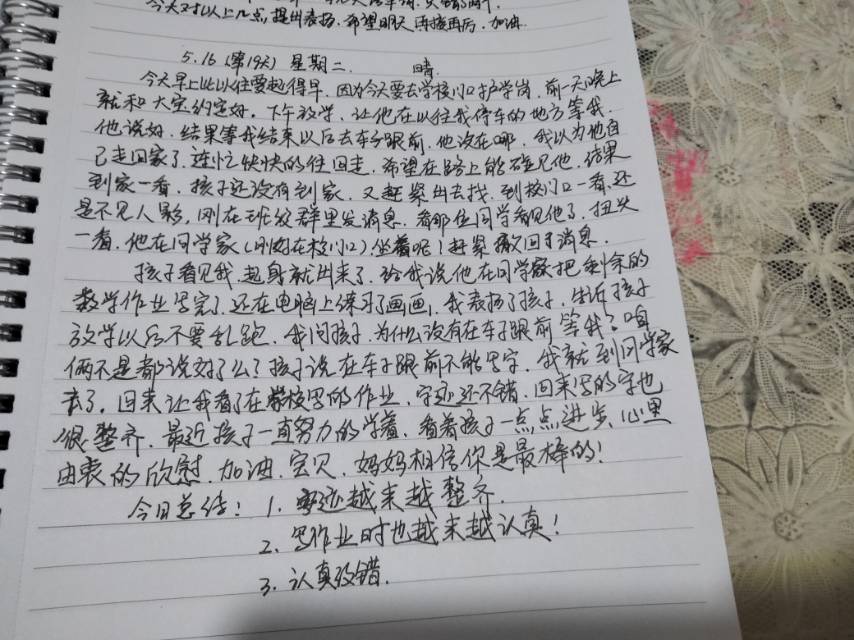 今天对以上几点,提出表扬,希望明天再接再厉,加油
5.16(第19天)星期二. 晴.
今天早上比以往要起得早,因为今天要去学校门口护学岗,前一天晚上
就和大宝约定好,下午放学,让他在以往我停车的地方等我.
他说好,结果等我结束以后去车子跟前,他没在哪,我以为他自
己走回家了,连忙快快的往回走,希望在路上能碰见他,结果
到家一看,孩子还没有到家,又赶紧出去找,到校门口一看,还
是不见人影,刚在班级群里发消息,看那位同学看见他了,扭头
一看,他在同学家(刚好在校门口)坐着呢!赶紧撤回了消息.
孩子看见我,起身就出来了,给我说他在同学家把剩余的
数学作业写完了,还在电脑上练习了画画,我表扬了孩子,告诉孩子
放学以后不要乱跑,我问孩子,为什么没有在车子跟前等我?咱
俩不是都说好了么?孩子说在车子跟前不能写字,我就到同学家
去了,回来让我看了在学校写的作业,字迹还不错,回来写的字也
很整齐,最近孩子一直努力的学着,看着孩子一点点进步,心里
由衷的欣慰,加油,宝贝,妈妈相信你是最棒的!
今日总结:1.字迹越来越整齐.
2.写作业时也越来越认真!
3.认真改错.